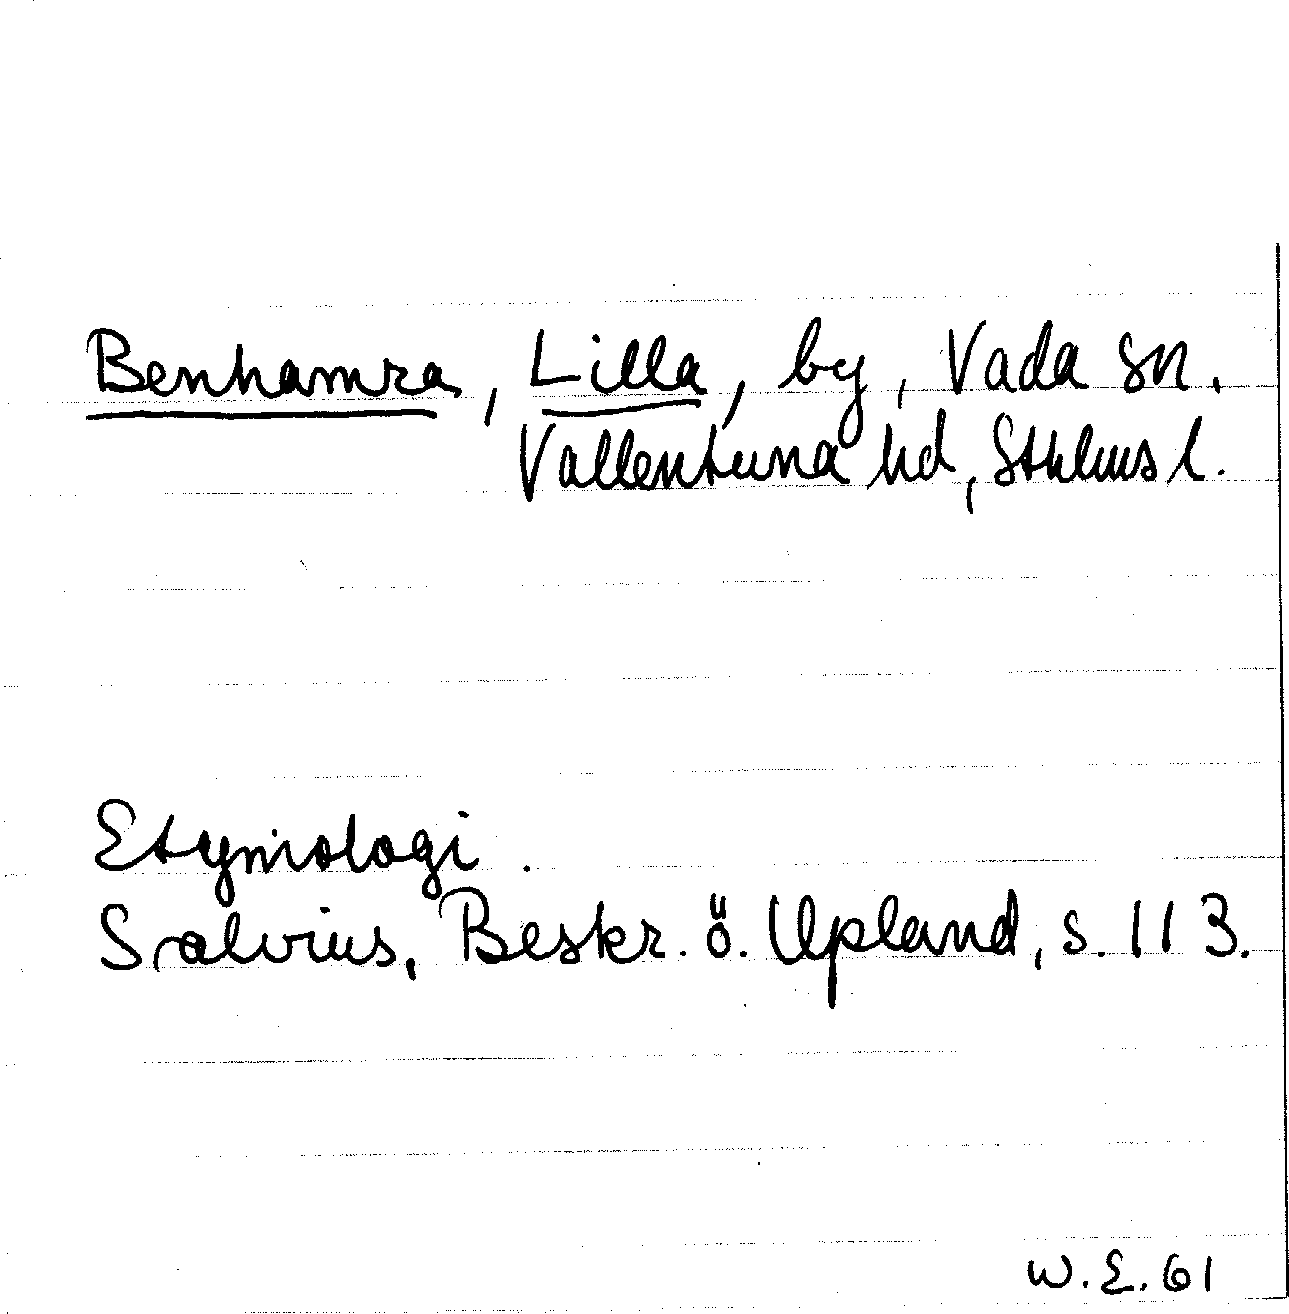 Benhamra, Lilla, by, Vada sn.
Vallentuna hd, Sthlms l.
Etymologi.
Salvius, Beskr. ö. Upland, s. 113.
W.E. 61